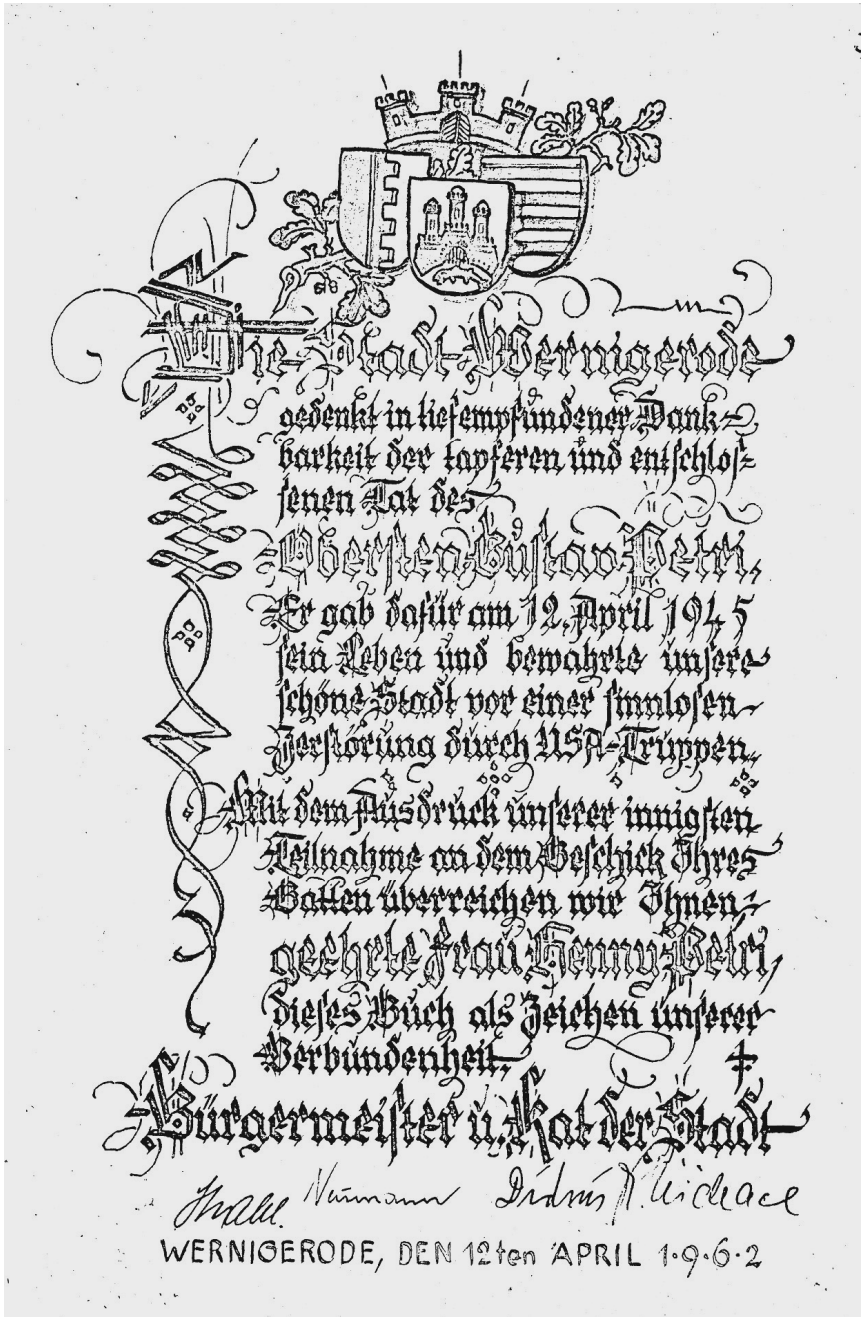 Die Stadt Wernigerode
gedenkt in tiefempfundener Dank=
barkeit der tapferen und entschlos=
senen Tat des
Obersten Gustav Petri,
Er gab dafür am 12. April 1945
sein Leben und bewahrte unsere
schöne Stadt vor einer sinnlosen
Zerstörung durch USA-Truppen.
Mit dem Ausdruck unserer innigsten
Teilnahme an dem Geschick Ihres
Gatten überreichen wir Ihnen,
geehrte Frau Henny Petri,
dieses Buch als Zeichen unserer
Verbundenheit.
Bürgermeister u. Rat der Stadt
Neumann
WERNIGERODE, DEN 12ten APRIL 1·9·6·2